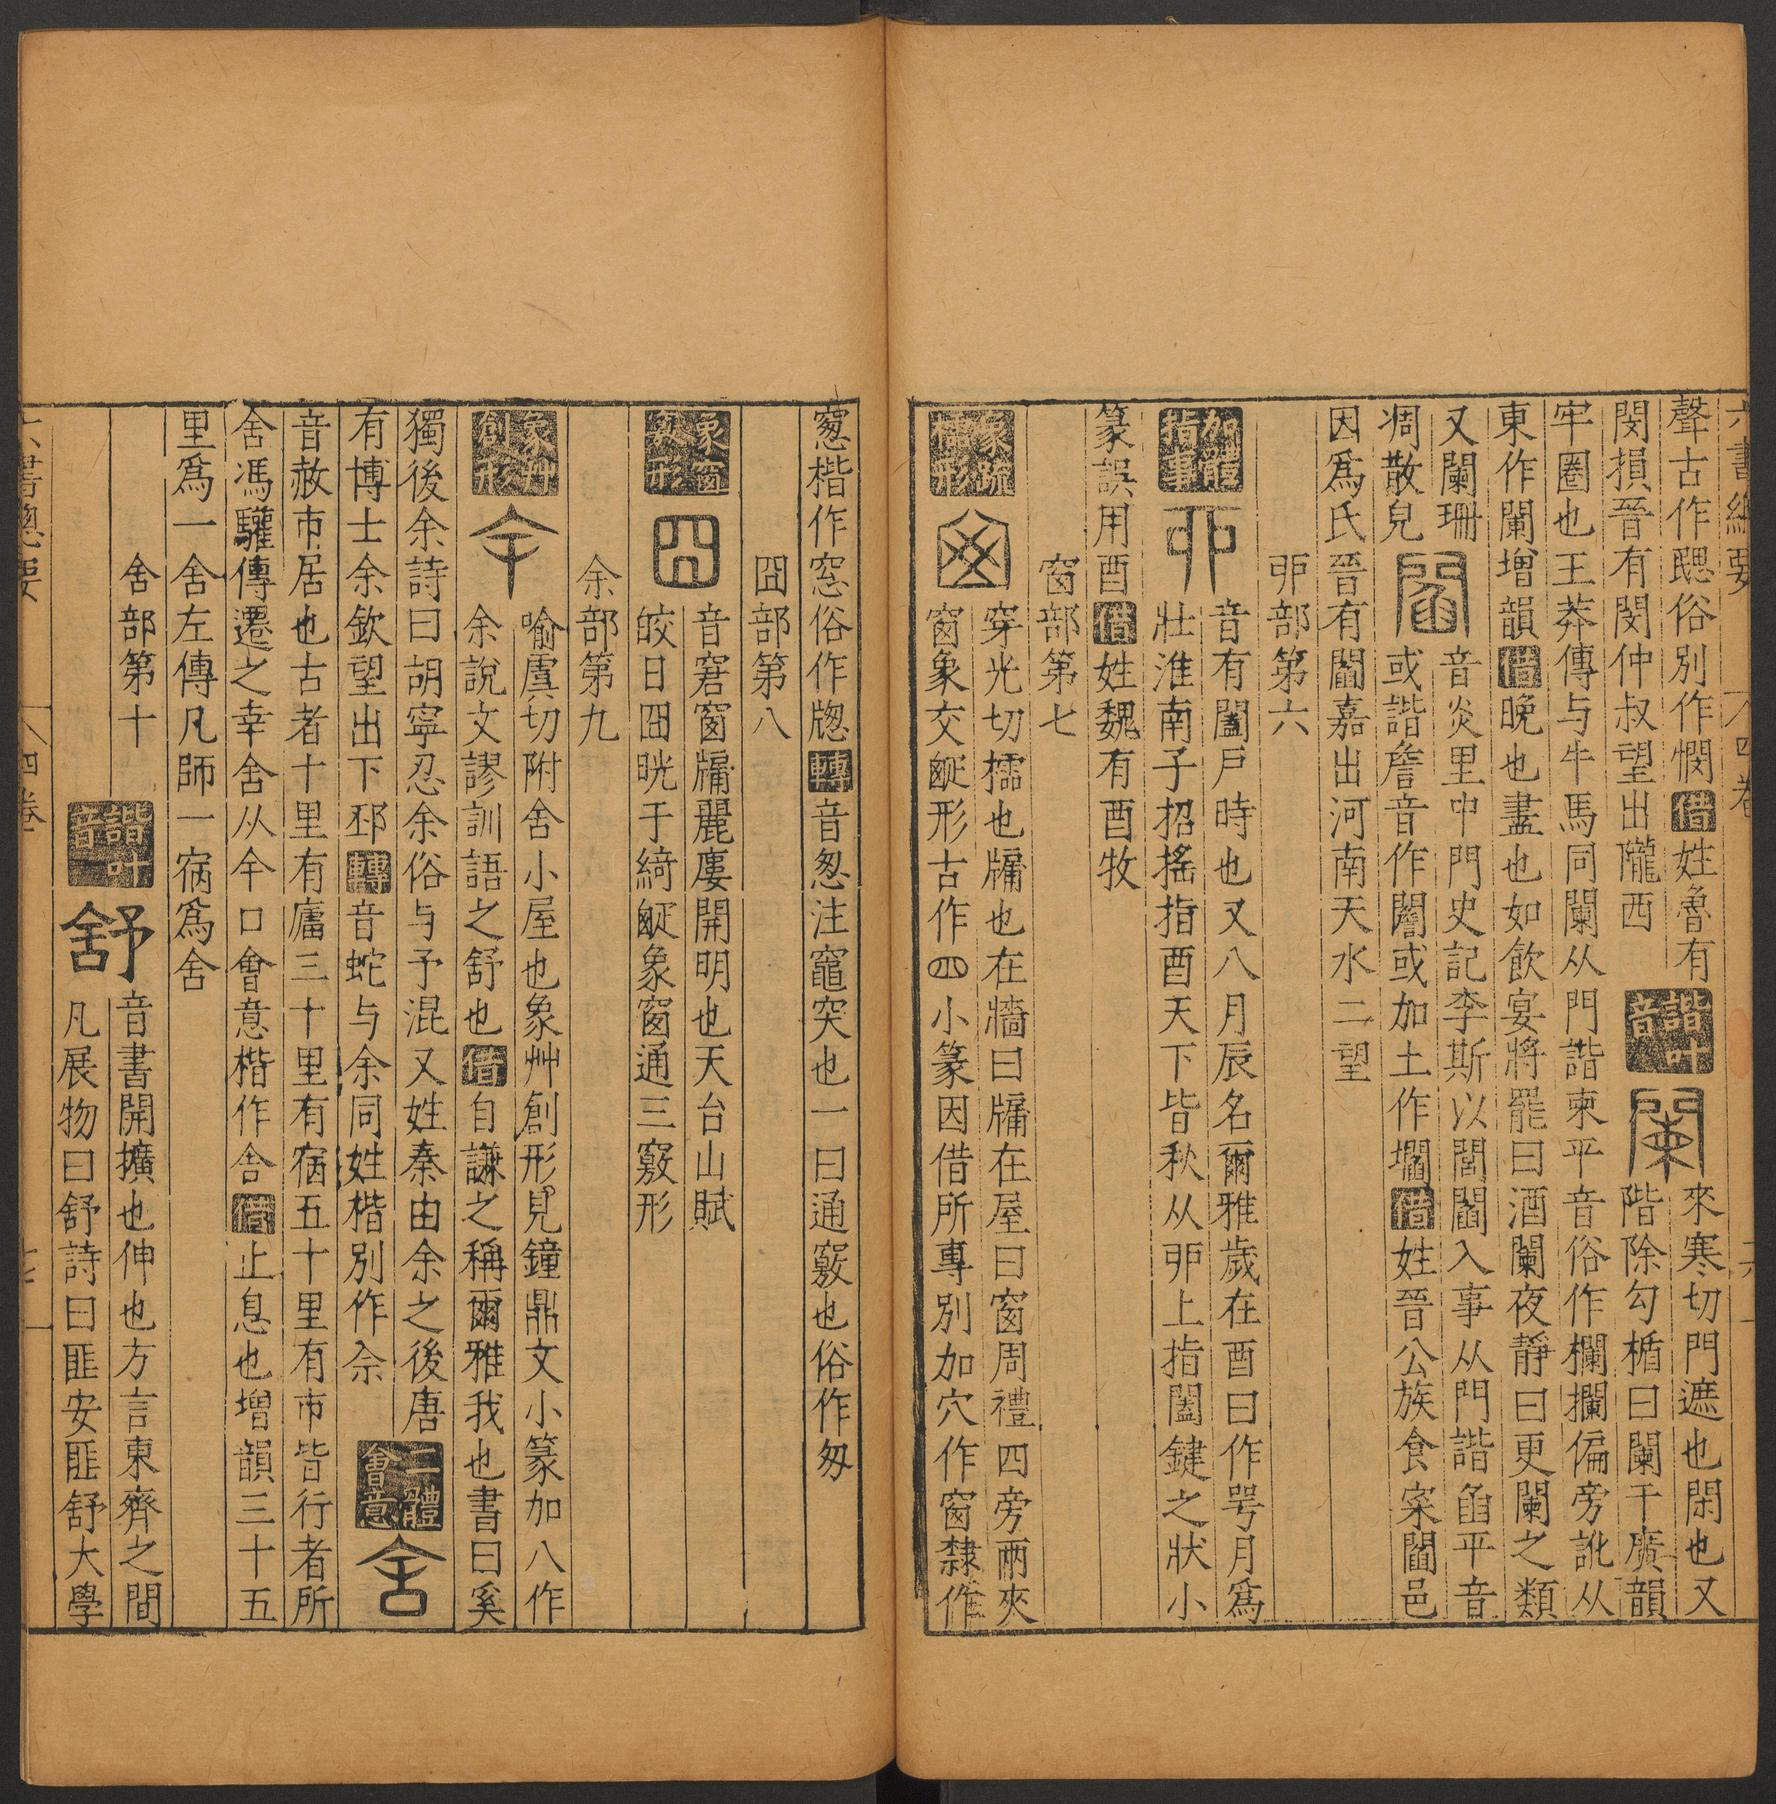 六書總要 四卷 六
聲古作䦉俗別作憫借姓魯有
閔損晉有閔仲叔望出隴西 諧叶音 闌 來寒切門遮也閑也又
階除勾楯曰闌干廣韻
牢圈也王莽傳与牛馬同闌从門諧柬平音俗作欄攔偏旁訛从
東作闌增韻借晚也盡也如飲宴將罷曰酒闌夜靜曰更闌之類
又闌珊
凋散皃 閻 音炎里中門史記李斯以閭閻入事从門諧臽平音
或諧詹音作闇或加土作壛借姓晉公族食寀閻邑
因爲氏晉有閻嘉出河南天水二望
丣部第六
加體指事 丣 音有闔戶時也又八月辰名爾雅歲在酉曰作咢月爲
壯淮南子招搖指酉天下皆秋从丣上指闔鍵之狀小
篆誤用酉借姓魏有酉牧
窗部第七
象疏櫺形 囪 穿光切㩎也牖也在牆曰牖在屋曰窗周禮四旁兩夾
窗象交疏形古作囪小篆因借所專別加穴作窗隸作
窻楷作窓俗作牕轉音怱注竈突也一曰通竅也俗作匆
囧部第八
象窗竅形 囧 音窘窗牖麗廔開明也天台山賦
皎日囧晄于綺疏象窗通三竅形
余部第九
象艸創形 余 喻虞切附舍小屋也象艸創形見鐘鼎文小篆加八作
余說文謬訓語之舒也借自謙之稱爾雅我也書曰奚
獨後余詩曰胡寧忍余俗与予混又姓秦由余之後唐
有博士余欽望出下邳轉音蛇与余同姓楷別作佘 二體會意 舍
音赦市居也古者十里有廬三十里有宿五十里有市皆行者所
舍馮驩傳遷之幸舍从亼口會意楷作舎借止息也增韻三十五
里爲一舍左傳凡師一宿爲舍
舍部第十
諧叶音 舒 音書開擴也伸也方言東齊之間
凡展物曰舒詩曰匪安匪舒大學
六書總要 四卷 七